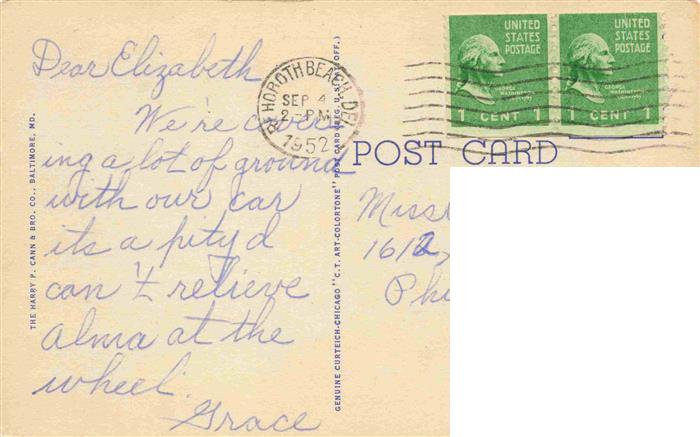 Dear Elizabeth
We're cover
ing a lot of ground
with our car
its a pity d
can't relieve
Alma at the
wheel.
Grace
REHOBOTH BEACH, DEL.
SEP 4
2 - PM
1952
UNITED STATES POSTAGE
GEORGE WASHINGTON
1 CENT 1
UNITED STATES POSTAGE
GEORGE WASHINGTON
1 CENT 1
POST CARD
Miss
1612
Phi
THE HARRY P. CANN & BRO. CO., BALTIMORE, MD.
GENUINE CURTEICH-CHICAGO "C.T. ART-COLORTONE" POST CARD (REG. U.S. PAT. OFF.)